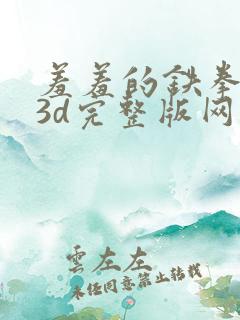 羞羞的鉄拳
3d完整版网
雲左左
未经同意禁止转载